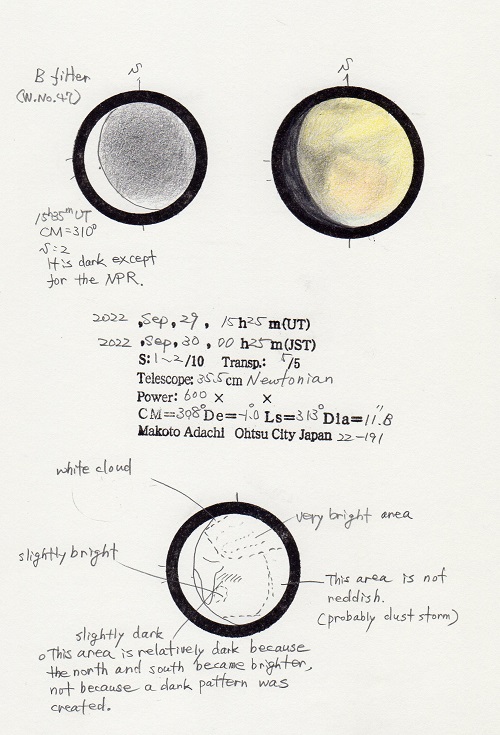 B filter
(W.No.47)
N
N
15h35m UT
CM=310°
S=2
It is dark except
for the NPR.
2022 ,Sep, 29 , 15h25 m(UT)
2022 ,Sep, 30 , 00 h25 m(JST)
S: 1~2/10 Transp.: 5/5
Telescope: 35.5cm Newtonian
Power: 600 × ×
CM=308° De=-1.0° Ls=313° Dia=11."8
Makoto Adachi Ohtsu City Japan 22-191
white cloud
very bright area
slightly bright
This area is not
reddish.
(probably dust storm)
slightly dark
○This area is relatively dark because
the north and south became brighter,
not because a dark pattern was
created.